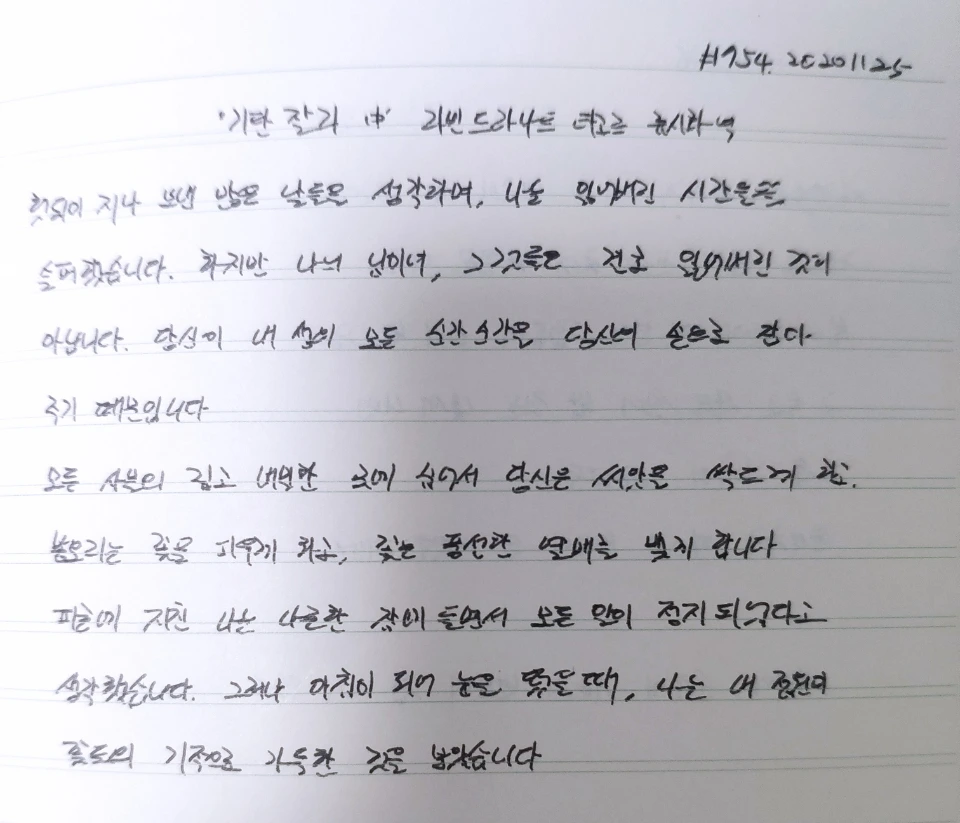 #754. 20201125
'기탄잘리 中' 라빈드라나트 타고르 류시화 역
헛되이 지나 보낸 많은 날들을 생각하며, 나는 잃어버린 시간을
슬퍼했습니다. 하지만 나의 님이여, 그것들은 결코 잃어버린 것이
아닙니다. 당신이 내 삶의 모든 순간순간을 당신의 손으로 잡아
주기 때문입니다
모든 사물의 깊고 내밀한 곳에 숨어서 당신은 씨앗을 싹트게 하고.
봉오리는 꽃을 피우게 하고, 꽃은 풍성한 열매를 맺게 합니다
피곤에 지친 나는 나른한 잠에 들면서 모든 일이 정지되었다고
생각했습니다. 그러나 아침이 되어 눈을 떴을 때, 나는 내 정원이
꽃들의 기적으로 가득한 것을 보았습니다